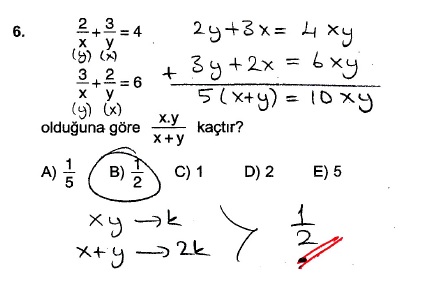 6. 2/x + 3/y = 4
(y) (x)
3/x + 2/y = 6
(y) (x)
2y+3x = 4xy
+ 3y+2x = 6xy
5(x+y) = 10xy
olduğuna göre x.y/x+y kaçtır?
A) 1/5 B) 1/2 C) 1 D) 2 E) 5
xy → k
x+y → 2k
1/2